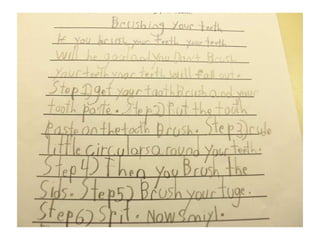 Brushing your teeth
If you brush your teeth your teeth
Will be good and you Don't Brush
your teeth your teeth will fall out.
Step 1) get your tooth Brush and your
tooth paste. Step 2) Put the tooth
Paste on the tooth Brush. Step 3)
little circulars around your teeth.
Step 4) Then you Brush the
Sids. Step 5) Brush your tuge.
Step 6) Spit. Now smiyl.